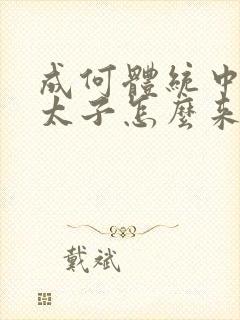 成何體統中
太子怎麼來
戴斌